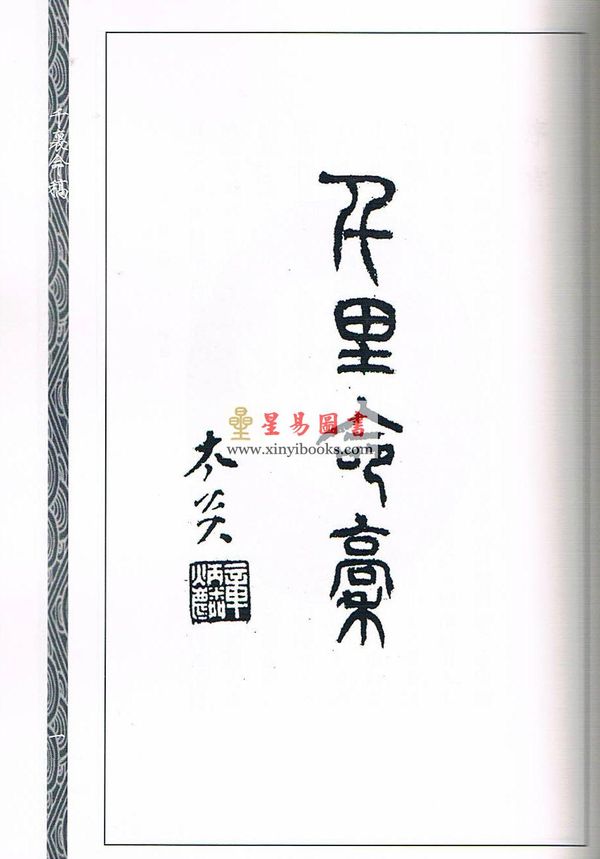 千里命稾
太炎
章炳麟
千裏命稿
一
星易圖書
www.xinyibooks.com